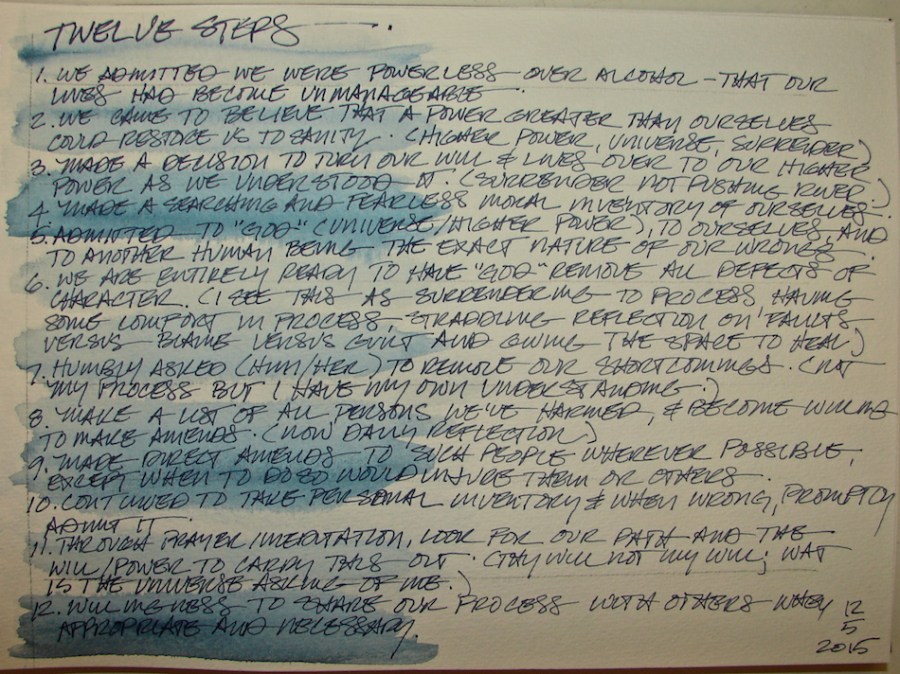 TWELVE STEPS —.
1. WE ADMITTED WE WERE POWERLESS OVER ALCOHOL – THAT OUR
LIVES HAD BECOME UNMANAGEABLE.
2. WE CAME TO BELIEVE THAT A POWER GREATER THAN OURSELVES
COULD RESTORE US TO SANITY. (HIGHER POWER, UNIVERSE, SURRENDER)
3. MADE A DECISION TO TURN OUR WILL & LIVES OVER TO OUR HIGHER
POWER AS WE UNDERSTOOD IT. (SURRENDER NOT PUSHING RIVER.)
4. MADE A SEARCHING AND FEARLESS MORAL INVENTORY OF OURSELVES.
5. ADMITTED TO "GOD" (UNIVERSE/HIGHER POWER), TO OURSELVES, AND
TO ANOTHER HUMAN BEING THE EXACT NATURE OF OUR WRONGS.
6. WE ARE ENTIRELY READY TO HAVE "GOD" REMOVE ALL DEFECTS OF
CHARACTER. (I SEE THIS AS SURRENDERING TO PROCESS, HAVING
SOME COMFORT IN PROCESS, STRADDLING REFLECTION ON 'FAULTS'
VERSUS BLAME VERSUS GUILT AND GIVING THE SPACE TO HEAL)
7. HUMBLY ASKED (HIM/HER) TO REMOVE OUR SHORTCOMINGS. (NOT
MY PROCESS BUT I HAVE MY OWN UNDERSTANDING.)
8. MAKE A LIST OF ALL PERSONS WE'VE HARMED, & BECOME WILLING
TO MAKE AMENDS. (NOW DAILY REFLECTION)
9. MADE DIRECT AMENDS TO SUCH PEOPLE WHEREVER POSSIBLE,
EXCEPT WHEN TO DO SO WOULD INJURE THEM OR OTHERS.
10. CONTINUED TO TAKE PERSONAL INVENTORY & WHEN WRONG, PROMPTLY
ADMIT IT.
11. THROUGH PRAYER/MEDITATION, LOOK FOR OUR PATH AND THE
WILL/POWER TO CARRY THIS OUT. (THY WILL NOT MY WILL; WAT
IS THE UNIVERSE ASKING OF ME.)
12. WILLINGNESS TO SHARE OUR PROCESS WITH OTHERS WHEN
APPROPRIATE AND NECESSARY.
12
5
2015